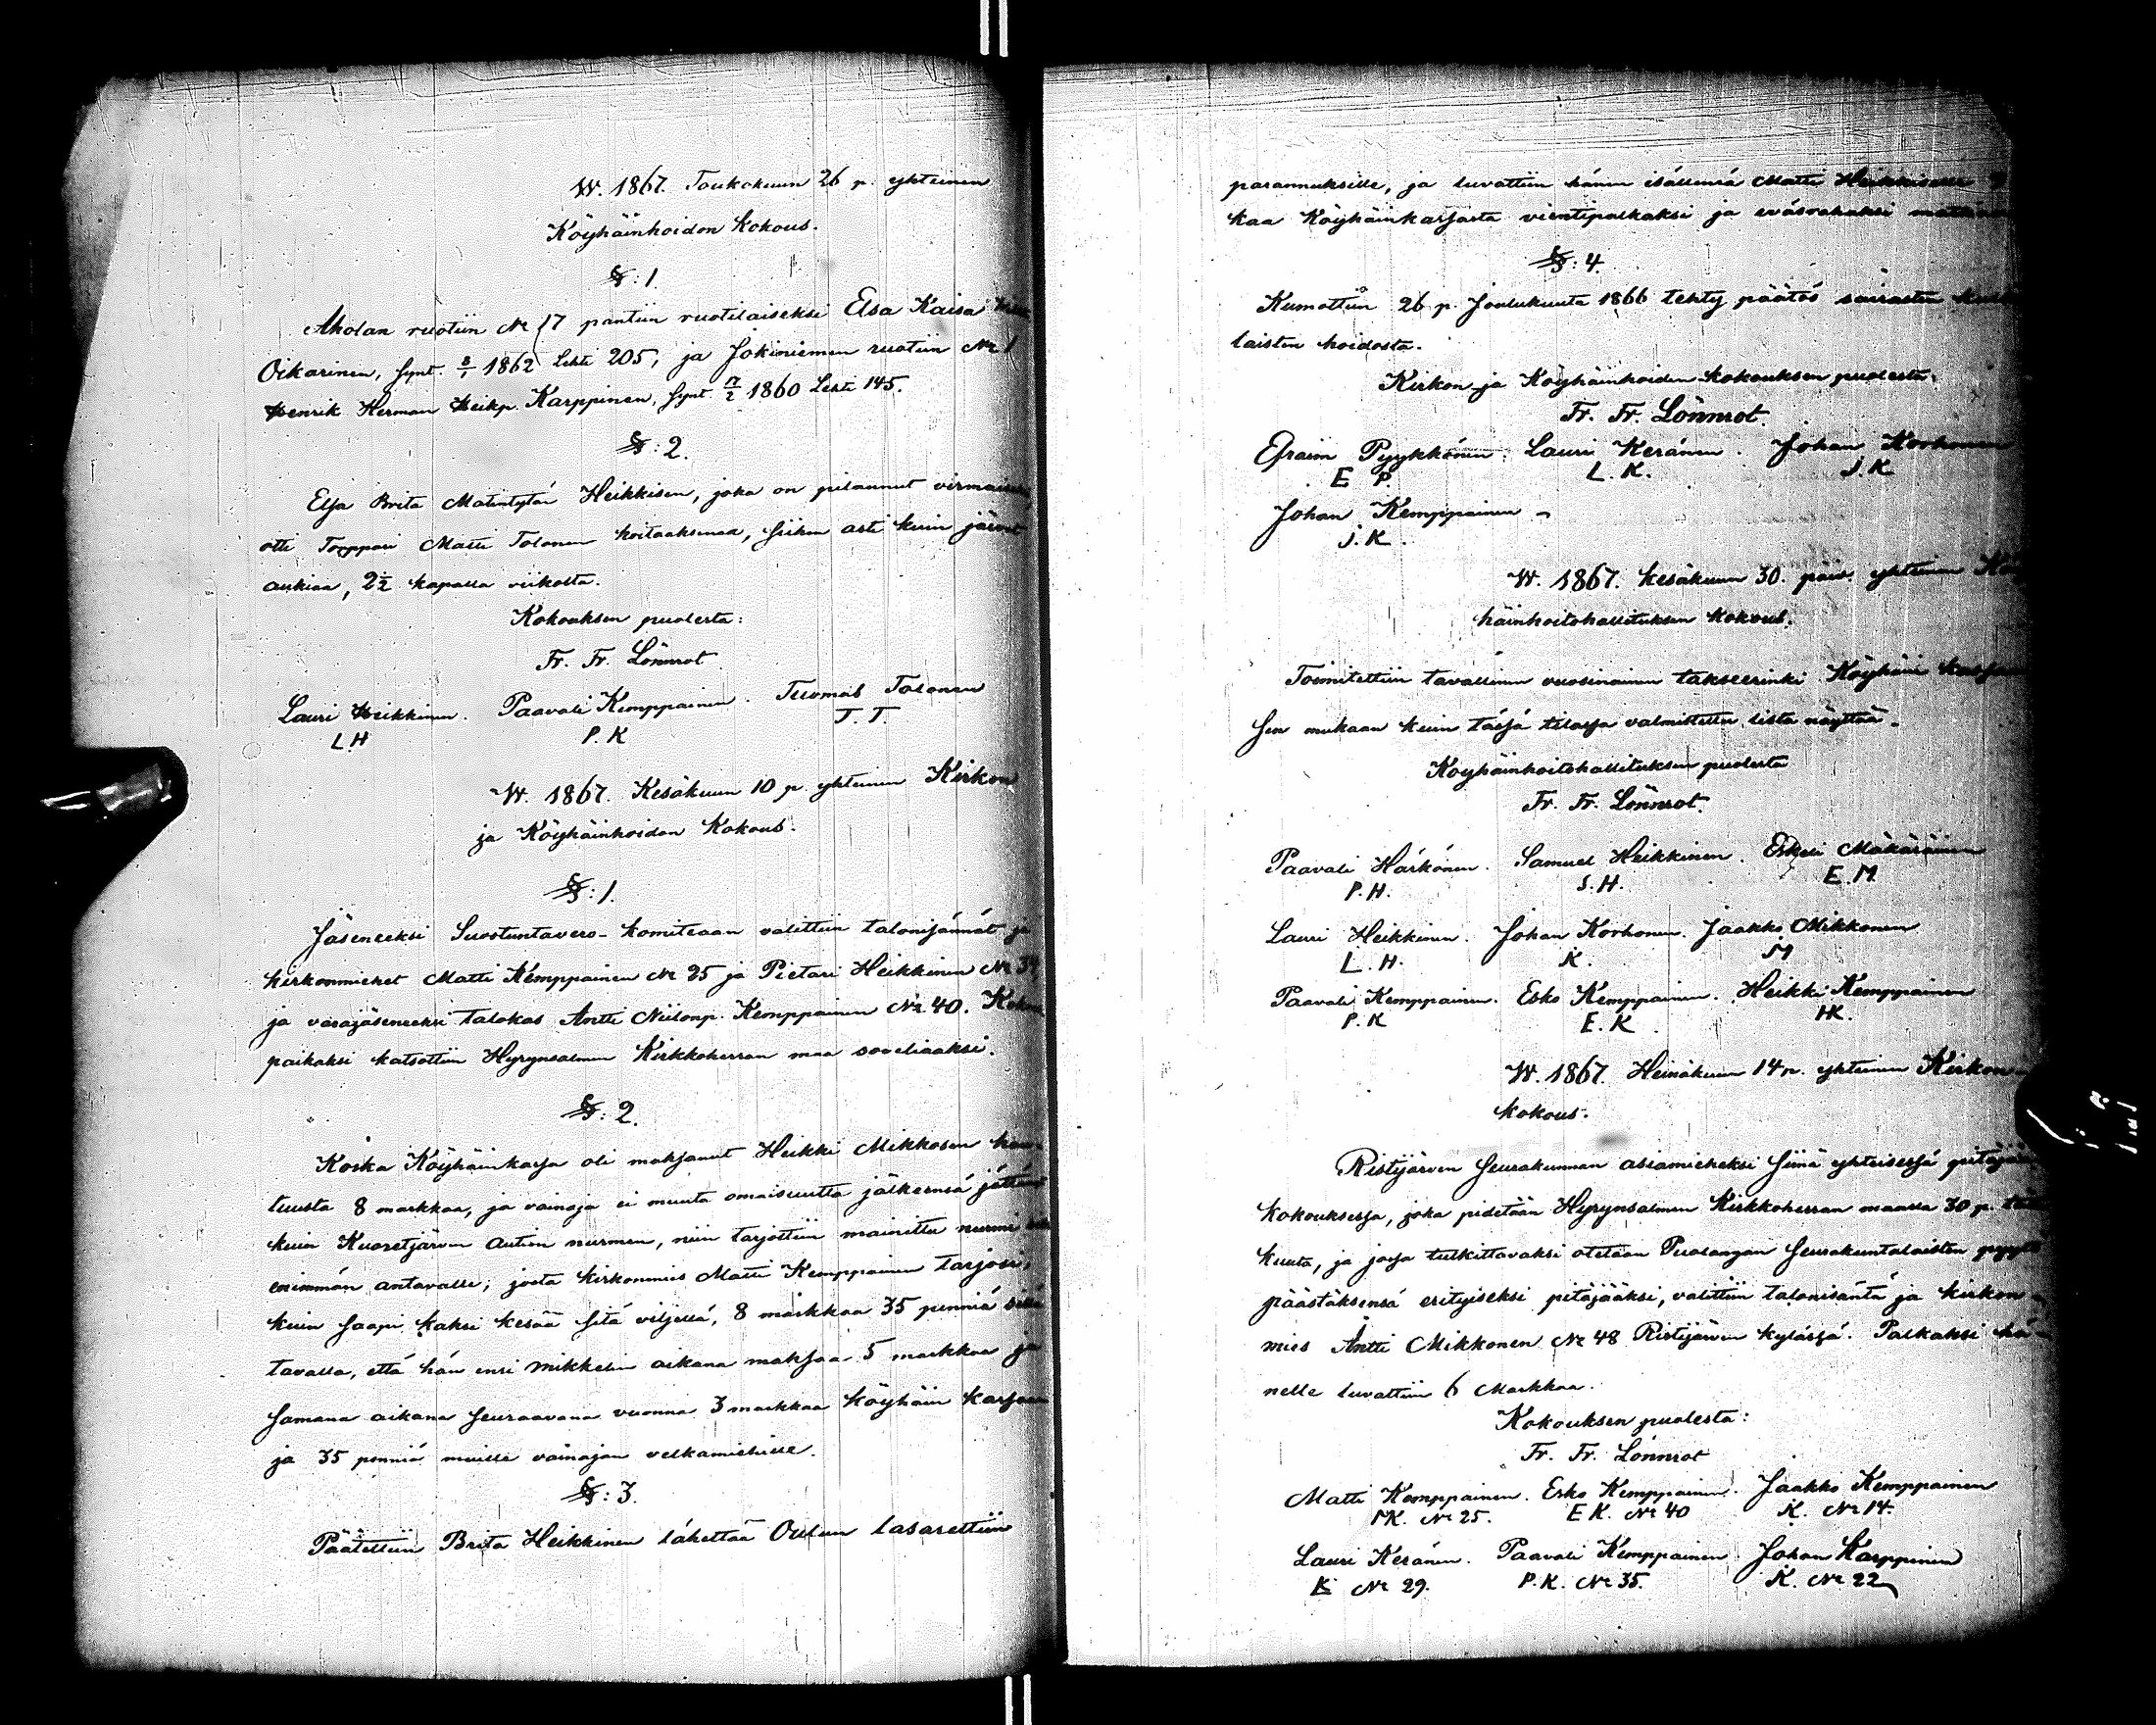 W. 1867. Toukokuun 26 p. yhteinen
Köyhäinhoidon Kokous.
§: 1.
Aholan ruotiin № 17 pantiin ruotilaiseksi Elsa Kaisa
Oikarinen, synt. 8/1 1862 Lehti 205; ja Jokiniemen ruotiin № 1
Henrik Herman Heikp. Karppinen, synt. 17/2 1860 Lehti 145.
§: 2.
Elsa Brita Matintytär Heikkisen, joka on pilannut
otti Torppari Matti Tolonen hoitaaksensa, siihen asti kuin järvet
aukiaa, 2 1/2 kapalla viikolta.
Kokouksen puolesta:
Fr. Fr. Lönnrot
Lauri Heikkinen. Paavali Kemppainen. Tuomas Tolonen
L.H P.K T.T.
W. 1867. Kesäkuun 10 p. yhteinen Kirkon
ja Köyhäinhoidon Kokous.
§: 1.
Jäseneeksi Suostuntavero-komiteaan valittiin talonisännät ja
kirkonmiehet Matti Kemppainen № 25 ja Pietari Heikkinen №
ja varajäseneeksi talokas Antti Niilonp. Kemppainen № 40.
paikaksi katsottiin Hyrynsalmen Kirkkoherran maa soveliaaksi.
§: 2.
Koska Köyhäinkassa oli maksanut Heikki Mikkosen hau-
tuusta 8 markkaa, ja vainaja ei muuta omaisuutta jälkeensä jättänyt
kuin Kuoretjärven Aution nurmen, niin tarjottiin mainittu nurmi
enimmän antavalle; josta kirkonmies Matti Kemppainen tarjosi,
kuin saapi kaksi kesää sitä viljellä, 8 markkaa 35 penniä sillä
tavalla, että hän ensi Mikkelin aikana maksaa 5 markkaa ja
samana aikana seuraavana vuonna 3 markkaa Köyhäin kassaan
ja 35 penniä muille vainajan velkamiehille.
§: 3.
Päätettiin Brita Heikkinen lähettää Oulun lasarettiin
parannuksille, ja luvattiin hänen isällensä Matti Heikkiselle
kaa Köyhäinkassasta vientipalkaksi ja evásrahaksi
§: 4.
Kumottiin 26 p. Joulukuuta 1866 tehty päätös sairasten
laisten hoidosta.
Kirkon- ja Köyhäinhoidon-kokouksen puolesta.
Fr. Fr. Lönnrot.
Efraim Pyykkönen. Lauri Keränen. Johan Korhonen
E P. L.K. J.K
Johan Kemppainen
J.K.
W. 1867. Kesäkuun 30. päiv. yhteinen Köy
häinhoitohallituksen Kokous.
Toimitettiin tavallinen vuosinainen takseerinki Köyhäin kassaan
sen mukaan kuin tässä tilassa valmistettu lista näyttää.
Köyhäinhoitohallituksen puolesta
Fr. Fr. Lönnrot.
Paavali Härkönen. Samuel Heikkinen. Erkki Mäkäräinen
P.H. S.H. E.M
Lauri Heikkinen. Johan Korhonen. Jaakko Mikkonen
L.H. K. M
Paavali Kemppainen. Esko Kemppainen. Heikki Kemppainen
P.K E.K HK.
W. 1867. Heinäkuun 14 p. yhteinen Kirkon-
kokous.
Ristijärven Seurakunnan asiamieheksi siinä yhteisessä pitäjän
kokouksessa, joka pidetään Hyrynsalmen Kirkkoherran maalla 30 p.
kuuta, ja jossa tutkittavaksi otetaan Puolangan Seurakuntalaisten
päästäksensä erityiseksi pitäjääksi, valittiin talonisäntä ja kirkon-
mies Antti Mikkonen № 48 Ristijärven kylässä. Palkaksi hä-
nelle luvattiin 6 Markkaa.
Kokouksen puolesta:
Fr. Fr. Lönnrot
Matti Kemppainen. Esko Kemppainen. Jaakko Kemppainen
MK. № 25. E K. № 40 K. № 14.
Lauri Keränen. Paavali Kemppainen. Johan Karppinen
K № 29. P.K. № 35. K. № 22